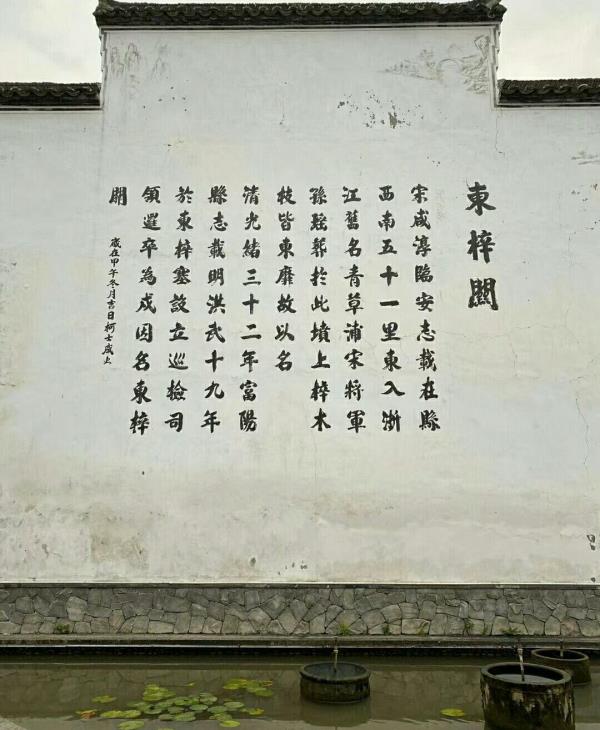 東梓關
宋咸淳臨安志載在縣
西南五十一里東入浙
江舊名青草浦宋將軍
孫瑶葬於此墳上梓木
枝皆東靡故以名
清光緒三十二年富陽
縣志載明洪武十九年
於東梓塞設立巡檢司
領邏卒為戍因名東梓
關
歲在甲午冬月吉日柯士成上